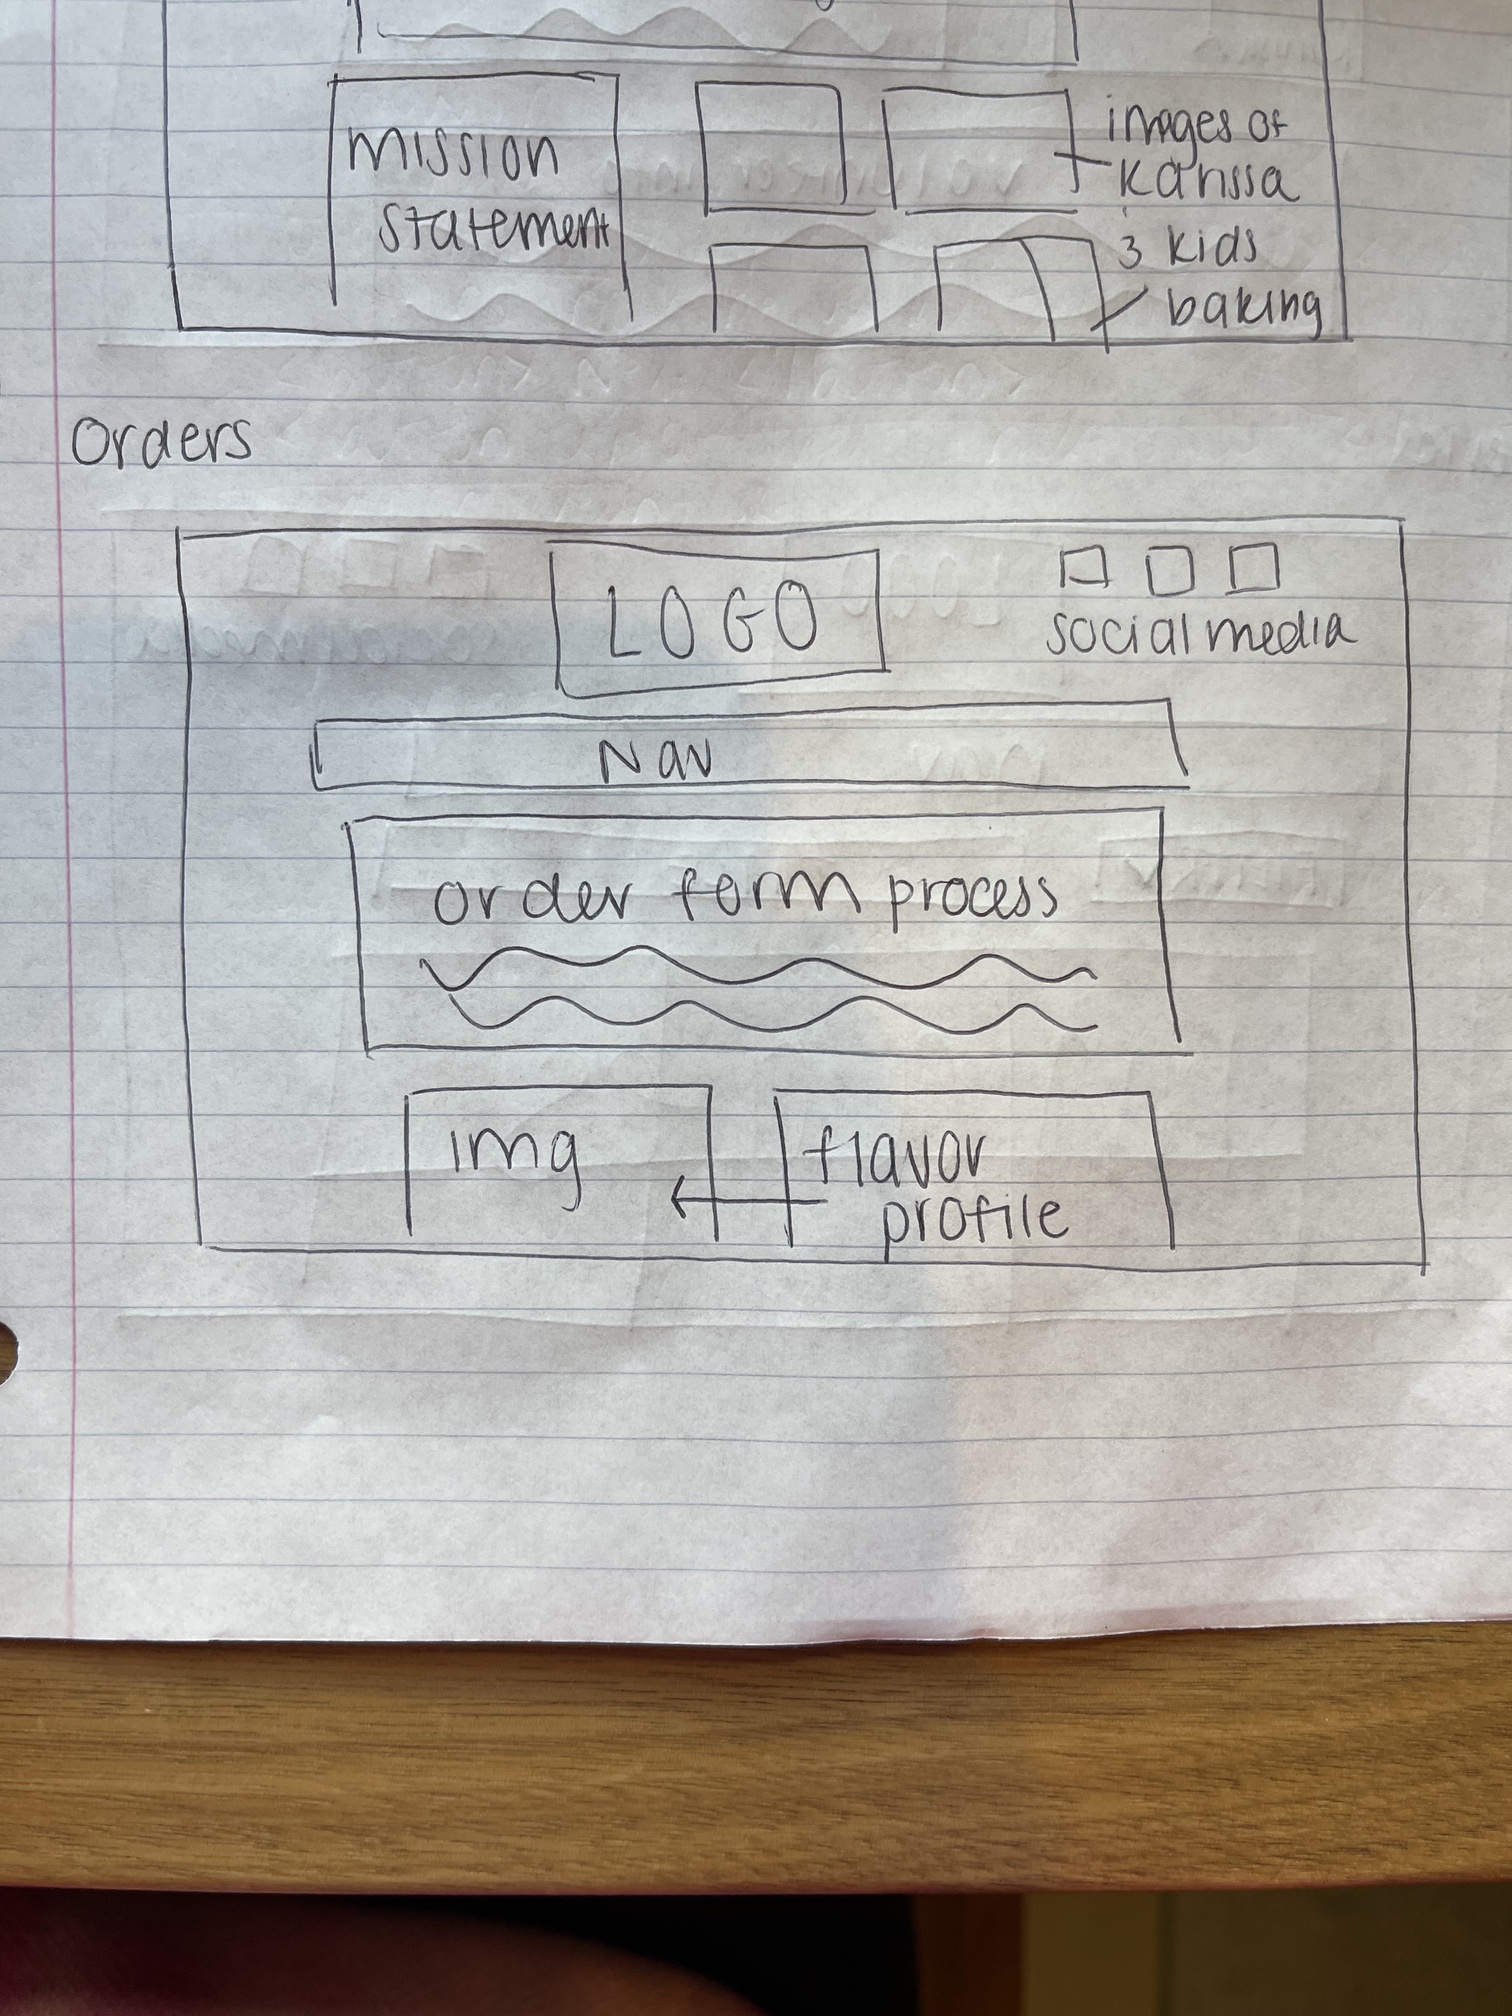 mission
statement
images of
Karissa
3 kids
baking
Orders
LOGO
social media
Nav
order form process
img
flavor
profile